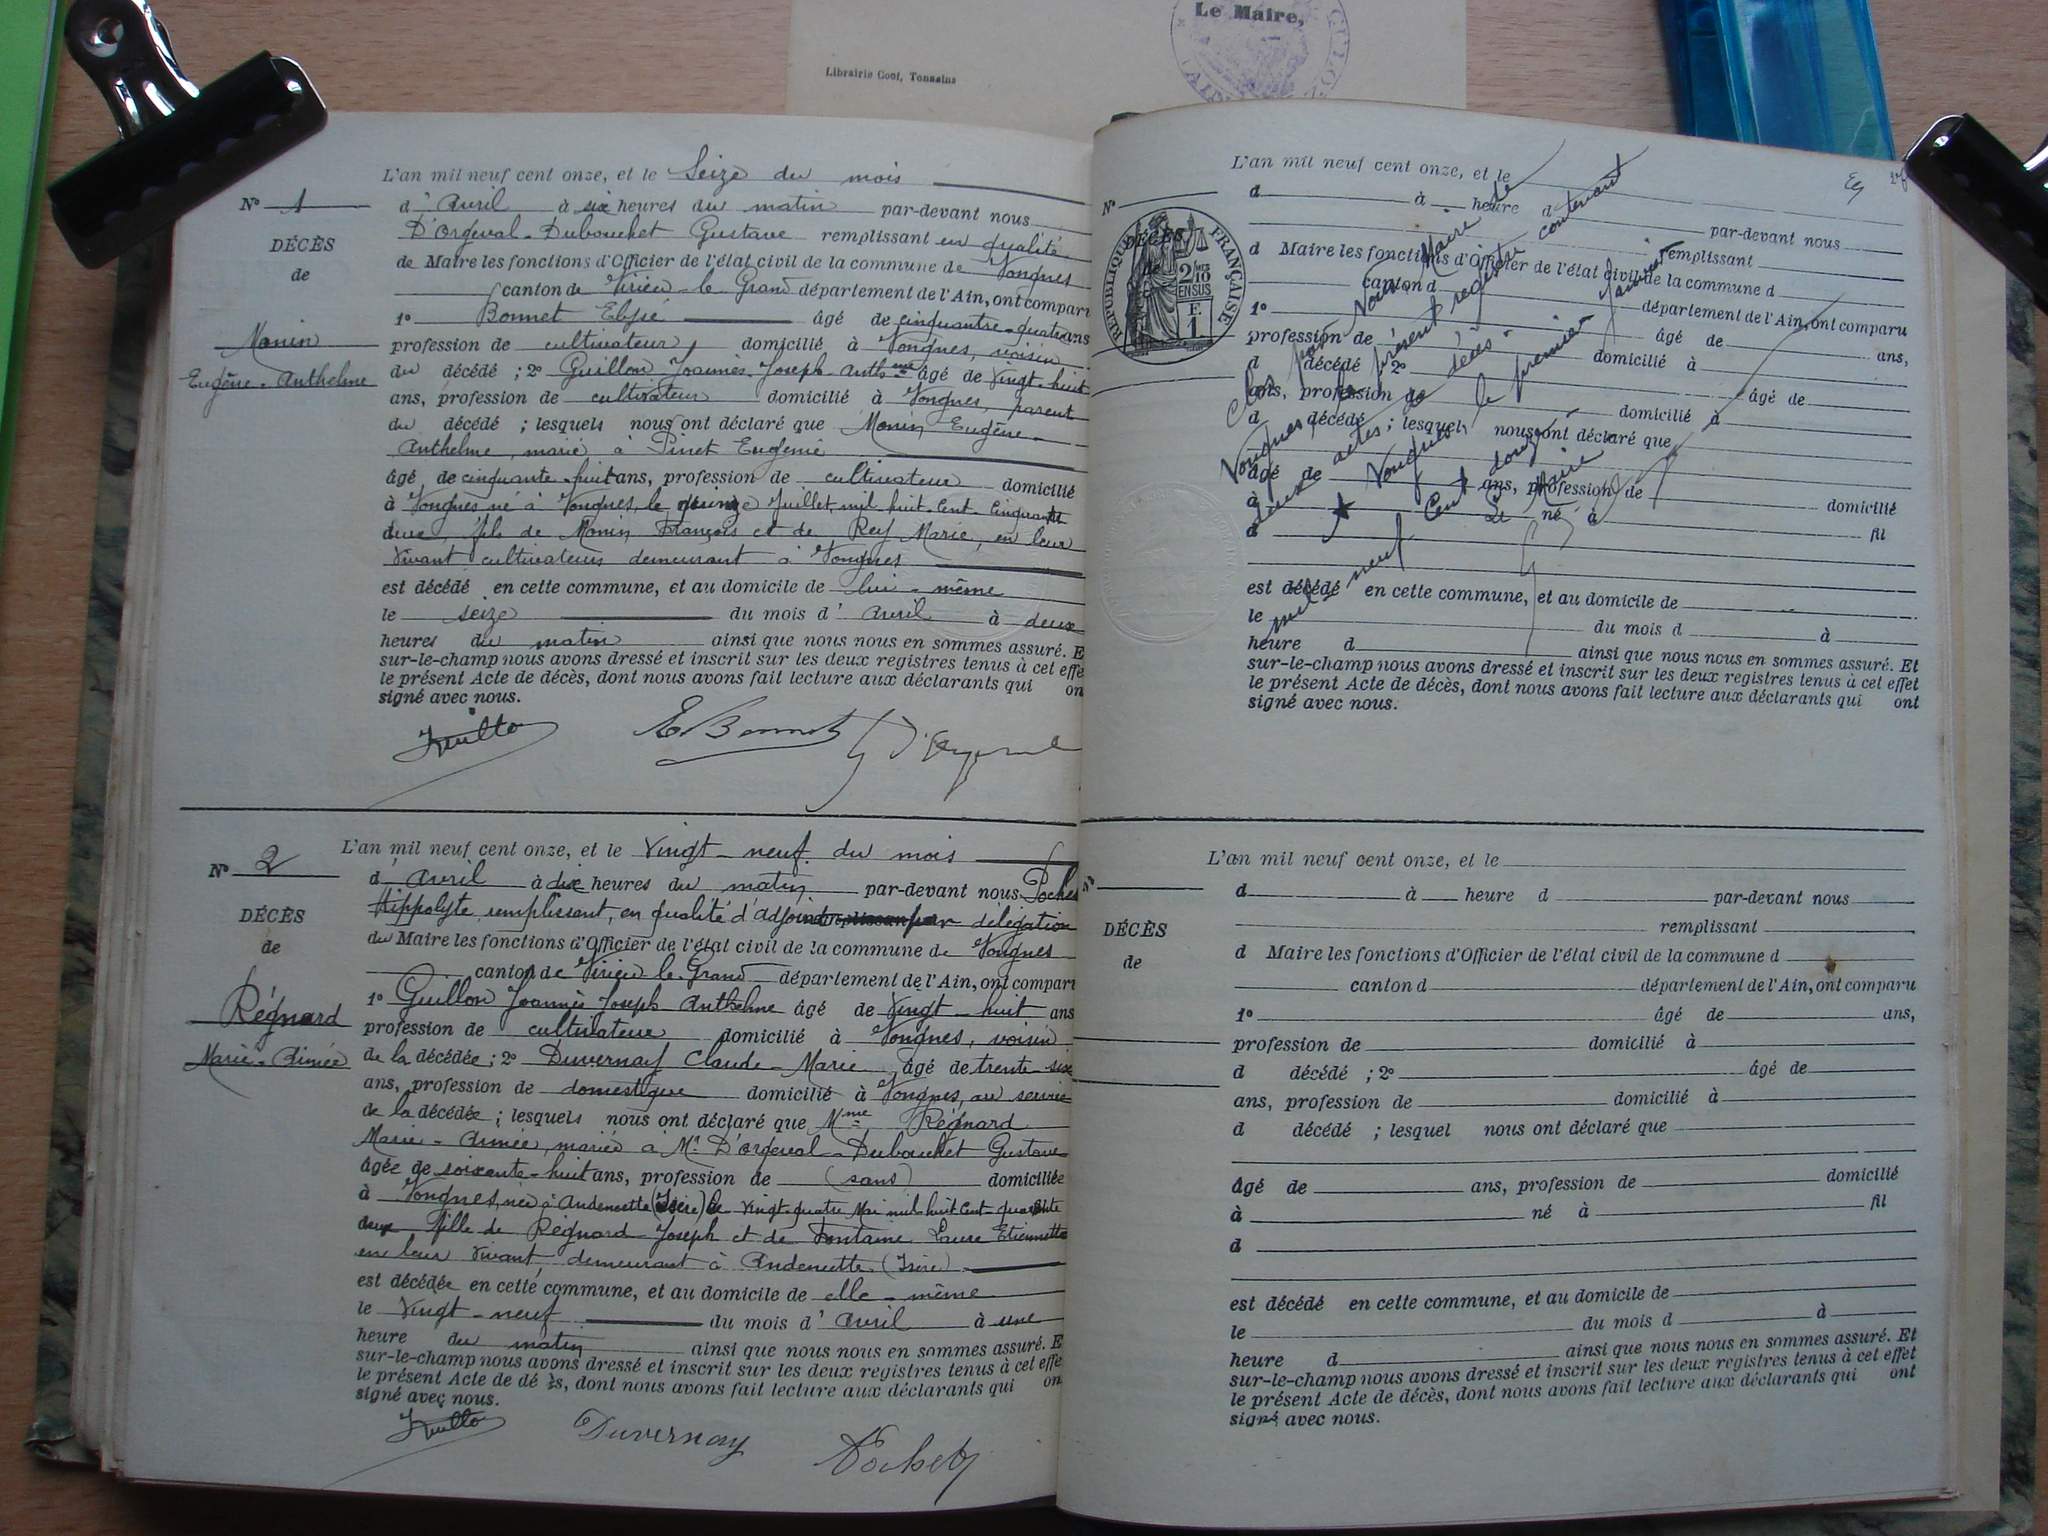 Le Maire,
Librairie Goof, Tenasins
L'an mil neuf cent onze, et le Seize du mois
N° 1
d'Avril à six heures du matin par-devant nous
D'orgeval-Dubouchet Gustave remplissant en qualité
DÉCÈS
de
de Maire les fonctions d'Officier de l'état civil de la commune de Vongnes
canton de Virieu-le Grand département de l'Ain, ont comparu
1° Bonnet Elysé âgé de cinquante-quatre ans
Monin
Eugène-Anthelme
profession de cultivateur domicilié à Vongnes, voisin
du décédé ; 2° Guillon Joannès Joseph Anthme âgé de vingt-huit
ans, profession de cultivateur domicilié à Vongnes, parent
du décédé ; lesquels nous ont déclaré que Monin Eugène-
Anthelme, marié à Pinet Eugénie
âgé de cinquante-huit ans, profession de cultivateur domicilié
à Vongnes né à Vongnes, le quinze Juillet mil huit-Cent-Cinquante
deux, fils de Monin François et de Rey Marie, en leur
vivant cultivateurs demeurant à Vongnes
est décédé en cette commune, et au domicile de lui-même
le seize du mois d'avril à deux
heures du matin ainsi que nous nous en sommes assuré. E
sur-le-champ nous avons dressé et inscrit sur les deux registres tenus à cet effe
le présent Acte de décès, dont nous avons fait lecture aux déclarants qui on
signé avec nous.
E. Bonnet
G d'Orgeval
L'an mil neuf cent onze, et le Vingt-neuf du mois
N° 2
d'Avril à dix heures du matin par-devant nous Pochet
Hippolyte remplissant, en qualité d'adjoint par délégation
DÉCÈS
de
du Maire les fonctions d'Officier de l'état civil de la commune de Vongnes
canton de Virieu le Grand département de l'Ain, ont comparu
1° Guillon Joannès Joseph Anthelme âgé de Vingt-huit ans
Régnard
Marie-Aimée
profession de cultivateur domicilié à Vongnes, voisin
de la décédée ; 2° Duvernay Claude-Marie âgé de trente six
ans, profession de domestique domicilié à Vongnes, au service
de la décédée ; lesquels nous ont déclaré que Mme Régnard
Marie-Aimée, mariée à Mr D'orgeval-Dubouchet Gustave
âgée de soixante-huit ans, profession de (sans) domiciliée
à Vongnes, née à Andencette (Isère) le Vingt-quatre Mai mil huit cent quarante
deux fille de Régnard Joseph et de Fontaine Laure Etiennette
en leur vivant, demeurant à Andencette (Isère)
est décédée en cette commune, et au domicile de elle-même
le Vingt-neuf du mois d'avril à une
heure du matin ainsi que nous nous en sommes assuré. E
sur-le-champ nous avons dressé et inscrit sur les deux registres tenus à cet effe
le présent Acte de dé ès, dont nous avons fait lecture aux déclarants qui on
signé avec nous.
Duvernay
Pochet
L'an mil neuf cent onze, et le
N°
d à heure d
par-devant nous
remplissant
RÉPUBLIQUE FRANÇAISE
2/10 MES
EN SUS
F.
1
DÉCÈS
de
d Maire les fonctions d'Officier de l'état civil de la commune d
canton d département de l'Ain, ont comparu
1° âgé de ans,
profession de domicilié à
d décédé 2° âgé de
ans, profession de domicilié à
d décédé ; lesquel nous ont déclaré que
âgé de ans, profession de domicilié
à né à fil
d
est décédé en cette commune, et au domicile de
le du mois d à
heure d ainsi que nous nous en sommes assuré. Et
sur-le-champ nous avons dressé et inscrit sur les deux registres tenus à cet effet
le présent Acte de décès, dont nous avons fait lecture aux déclarants qui ont
signé avec nous.
Clos par Nous, Maire de
Vongnes, le présent registre contenant
deux actes de décès.
Vongnes, le premier Janvier
mil neuf Cent douze
Le Maire
L'an mil neuf cent onze, et le
d à heure d par-devant nous
remplissant
DÉCÈS
de
d Maire les fonctions d'Officier de l'état civil de la commune d
canton d département de l'Ain, ont comparu
1° âgé de ans,
profession de domicilié à
d décédé ; 2° âgé de
ans, profession de domicilié à
d décédé ; lesquel nous ont déclaré que
âgé de ans, profession de domicilié
à né à fil
d
est décédé en cette commune, et au domicile de
le du mois d à
heure d ainsi que nous nous en sommes assuré. Et
sur-le-champ nous avons dressé et inscrit sur les deux registres tenus à cet effet
le présent Acte de décès, dont nous avons fait lecture aux déclarants qui ont
signé avec nous.